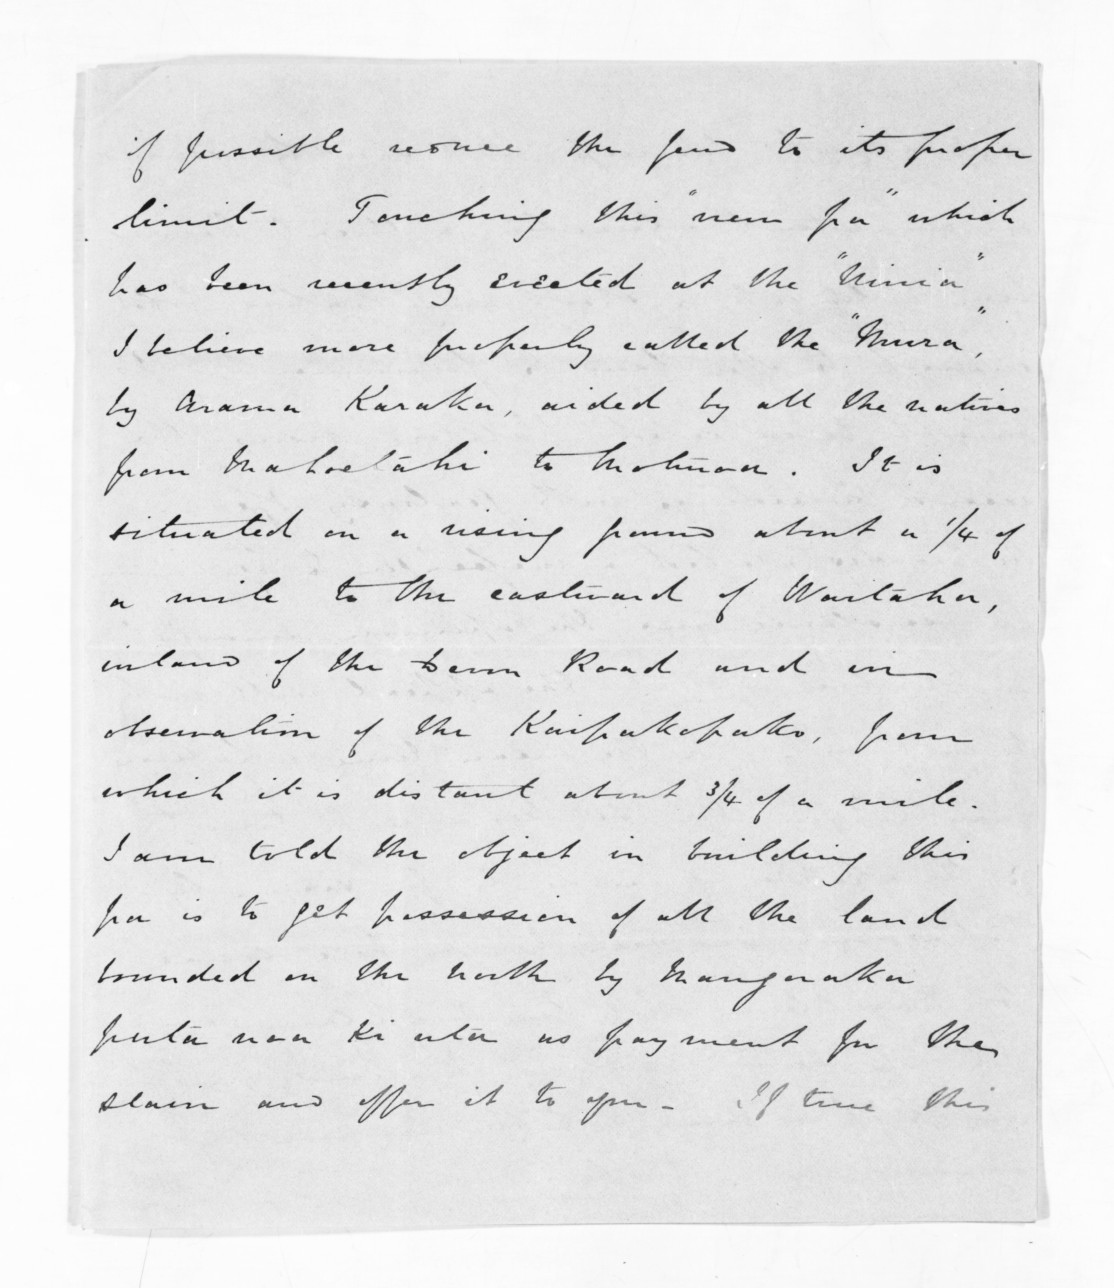 if possible reduce the feud to its proper
limit. Touching this "new pa" which
has been recently erected at the "Ninia"
I believe more properly called the "Mura",
by Arama Karaka, aided by all the natives
from Mahoetahi to Motunoa. It is
situated on a rising ground about a 1/4 of
a mile to the eastward of Waitaha,
inland of the Devon Road and in
observation of the Kaipakopako, from
which it is distant about 3/4 of a mile.
I am told the object in building this
pa is to get possession of all the land
bounded on the north by Mangaraka
puta noa ki uta as payment for the
slain and offer it to you. If true this